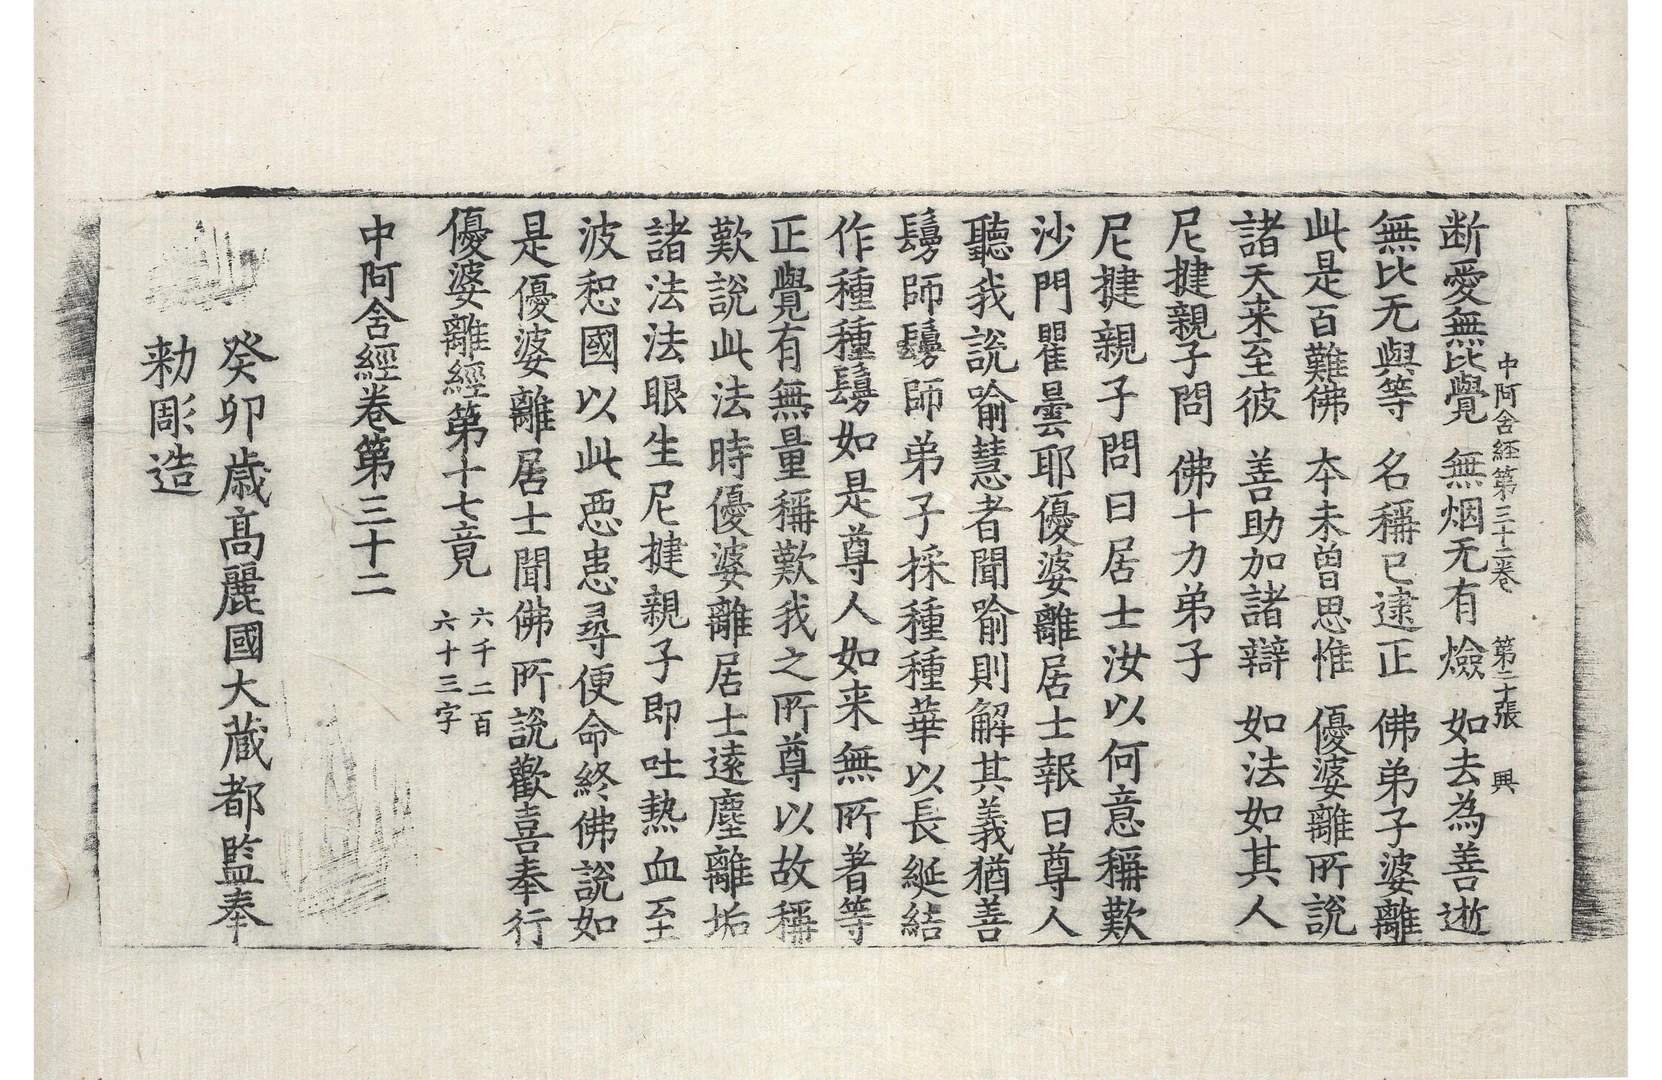 中阿含経第三十二卷 第二十張 興
断愛無比覺 無烟无有燄 如去為善逝
無比无與等 名稱已逮正 佛弟子婆離
此是百難佛 本未曽思惟 優婆離所說
諸天来至彼 善助加諸辯 如法如其人
尼揵親子問 佛十力弟子
尼揵親子問曰居士汝以何意稱歎
沙門瞿曇耶優婆離居士報曰尊人
聽我說喻慧者聞喻則解其義猶善
鬘師鬘師弟子採種種華以長綖結
作種種鬘如是尊人如来無所著等
正覺有無量稱歎我之所尊以故稱
歎說此法時優婆離居士遠塵離垢
諸法法眼生尼揵親子即吐熱血至
波惒國以此惡患尋便命終佛說如
是優婆離居士聞佛所說歡喜奉行
優婆離經第十七竟 六千二百
六十三字
中阿含經卷第三十二
癸卯歳高麗國大蔵都監奉
勑彫造